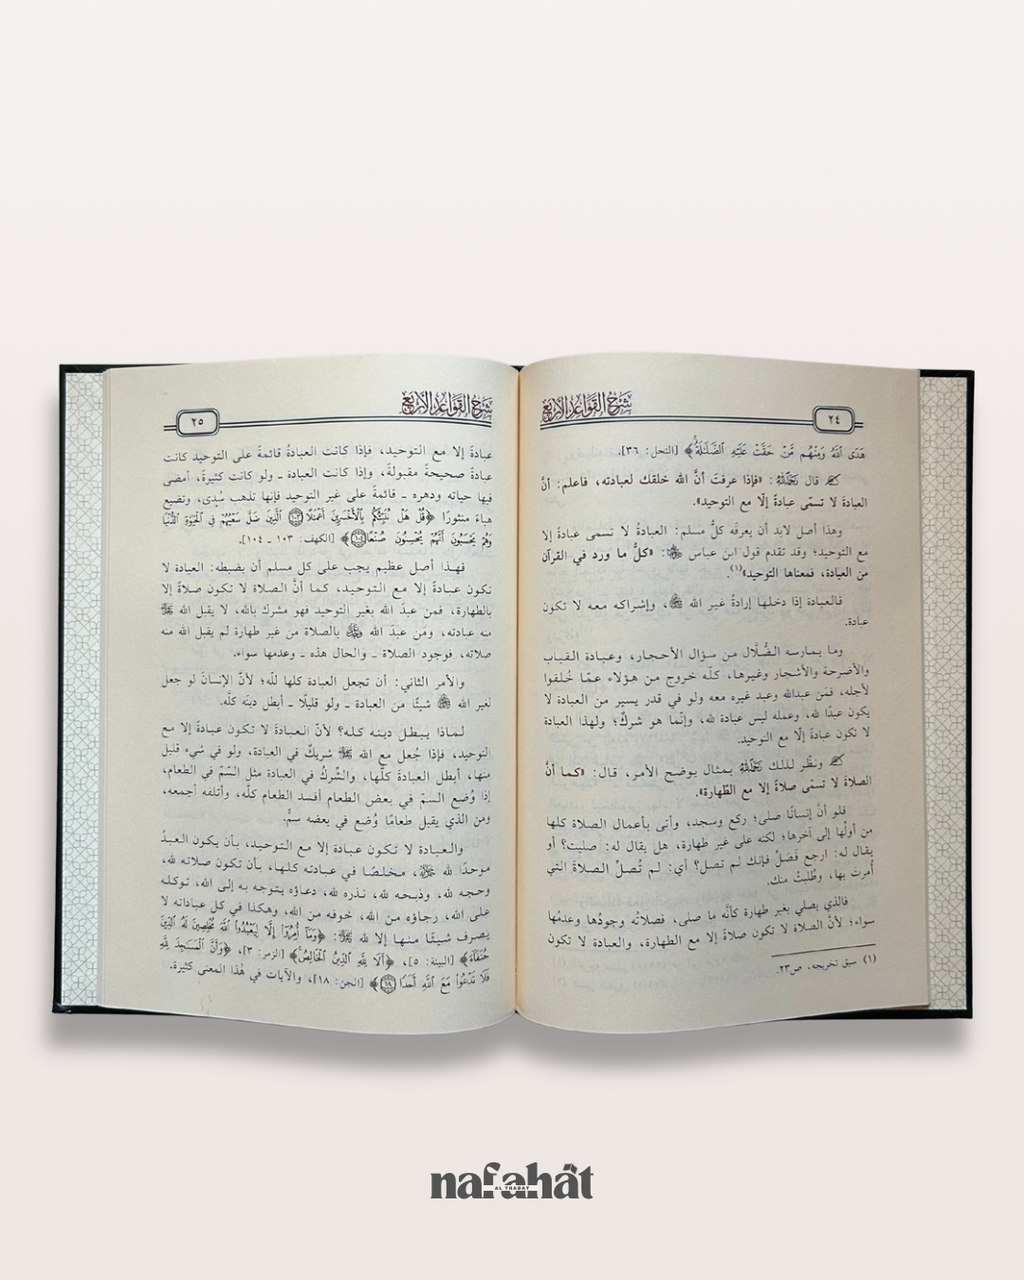 شرح القواعد الأربع
٢٤
هَدَى ٱللَّهُ وَمِنْهُم مَّنْ حَقَّتْ عَلَيْهِ ٱلضَّلَٰلَةُ﴾ [النحل: ٣٦].
قال رَحِمَهُ اللهُ: «فإذا عرفتَ أنَّ الله خلقك لعبادته، فاعلم: أنَّ
العبادة لا تسمّى عبادةً إلّا مع التوحيد».
وهذا أصل لابد أن يعرفَه كلُّ مسلم: العبادةُ لا تسمى عبادةً إلا
مع التوحيد؛ وقد تقدم قول ابن عباس ﷺ: «كلُّ ما ورد في القرآن
من العبادة، فمعناها التوحيد»(١).
فالعبادة إذا دخلها إرادةُ غير الله ﷻ، وإشراكه معه لا تكون
عبادة.
وما يمارسه الضُّلَّال من سؤال الأحجار، وعبادة القباب
والأضرحة والأشجار وغيرها، كلّه خروج من هؤلاء عمّا خُلقوا
لأجله، فمَن عبدالله وعبد غيره معه ولو في قدر يسير من العبادة لا
يكون عبدًا لله، وعمله ليس عبادة لله، وإنّما هو شركٌ؛ ولهذا العبادة
لا تكون عبادةً إلّا مع التوحيد.
ونظّر لذلك رَحِمَهُ اللهُ بمثال يوضح الأمر، قال: «كما أنَّ
الصلاة لا تسمّى صلاةً إلا مع الطّهارة».
فلو أنَّ إنسانًا صلى؛ ركع وسجد، وأتى بأعمال الصلاة كلها
من أولُها إلى آخرها؛ لكنه على غير طهارة، هل يقال له: صليت؟ أو
يقال له: ارجع فَصَلِّ فإنك لم تصل؟ أي: لم تُصلِّ الصلاةَ التي
أُمرت بها، وطُلبتْ منك.
فالذي يصلي بغير طهارة كأنَّه ما صلى، فصلاتُه وجودُها وعدمُها
سواء؛ لأنَّ الصلاة لا تكون صلاةً إلا مع الطهارة، والعبادة لا تكون
(١) سبق تخريجه، ص٢٣.
شرح القواعد الأربع
٢٥
عبادةً إلا مع التوحيد، فإذا كانت العبادةُ قائمةً على التوحيد كانت
عبادةً صحيحةً مقبولةً، وإذا كانت العبادة ـ ولو كانت كثيرةً، أمضى
فيها حياته ودهره ـ قائمةً على غير التوحيد فإنها تذهب سُدى، وتضيع
هباءً منثورًا ﴿قُلْ هَلْ نُنَبِّئُكُم بِٱلْأَخْسَرِينَ أَعْمَٰلًا ١٠٣ ٱلَّذِينَ ضَلَّ سَعْيُهُمْ فِي ٱلْحَيَوٰةِ ٱلدُّنْيَا
وَهُمْ يَحْسَبُونَ أَنَّهُمْ يُحْسِنُونَ صُنْعًا ١٠٤﴾ [الكهف: ١٠٣ ـ ١٠٤].
فهذا أصل عظيم يجب على كل مسلم أن يضبطه: العبادة لا
تكون عبادةً إلا مع التوحيد، كما أنَّ الصلاة لا تكون صلاةً إلا
بالطهارة، فمن عبدَ الله بغير التوحيد فهو مشرك بالله، لا يقبل الله ﷻ
منه عبادته، ومَن عبدَ الله بالصلاة من غير طهارة لم يقبل الله منه
صلاته، فوجود الصلاة ـ والحال هذه ـ وعدمها سواء.
والأمر الثاني: أن تجعل العبادة كلها للّه؛ لأنَّ الإنسانَ لو جعل
لغير الله ﷻ شيئًا من العبادة ـ ولو قليلًا ـ أبطل دينَه كلَّه.
لماذا يبطل دينه كله؟ لأنَّ العبادةَ لا تكون عبادةً إلا مع
التوحيد، فإذا جُعل مع الله ﷻ شريكٌ في العبادة، ولو في شيء قليل
منها، أبطل العبادةَ كلَّها، والشّركُ في العبادة مثل السّمّ في الطعام،
إذا وُضع السمّ في بعض الطعام أفسد الطعام كلَّه، وأتلفه أجمعه،
ومن الذي يقبل طعامًا وُضع في بعضه سمٌّ.
والعبادة لا تكون عبادة إلا مع التوحيد، بأن يكون العبدُ
موحدًا لله، مخلصًا في عبادته كلها، بأن تكون صلاته لله،
وحجه لله، وذبحه لله، نذره لله، دعاؤه يتوجه به إلى الله، توكله
على الله، رجاؤه من الله، خوفه من الله، وهكذا في كل عباداته لا
يصرف شيئًا منها إلا لله: ﴿وَمَآ أُمِرُوٓا۟ إِلَّا لِيَعْبُدُوا۟ ٱللَّهَ مُخْلِصِينَ لَهُ ٱلدِّينَ
حُنَفَآءَ﴾ [البينة: ٥]، ﴿أَلَا لِلَّهِ ٱلدِّينُ ٱلْخَالِصُ﴾ [الزمر: ٣]، ﴿وَأَنَّ ٱلْمَسَٰجِدَ لِلَّهِ
فَلَا تَدْعُوا۟ مَعَ ٱللَّهِ أَحَدًا ١٨﴾ [الجن: ١٨]، والآيات في هذا المعنى كثيرة.
nafahāt
AL THABAT